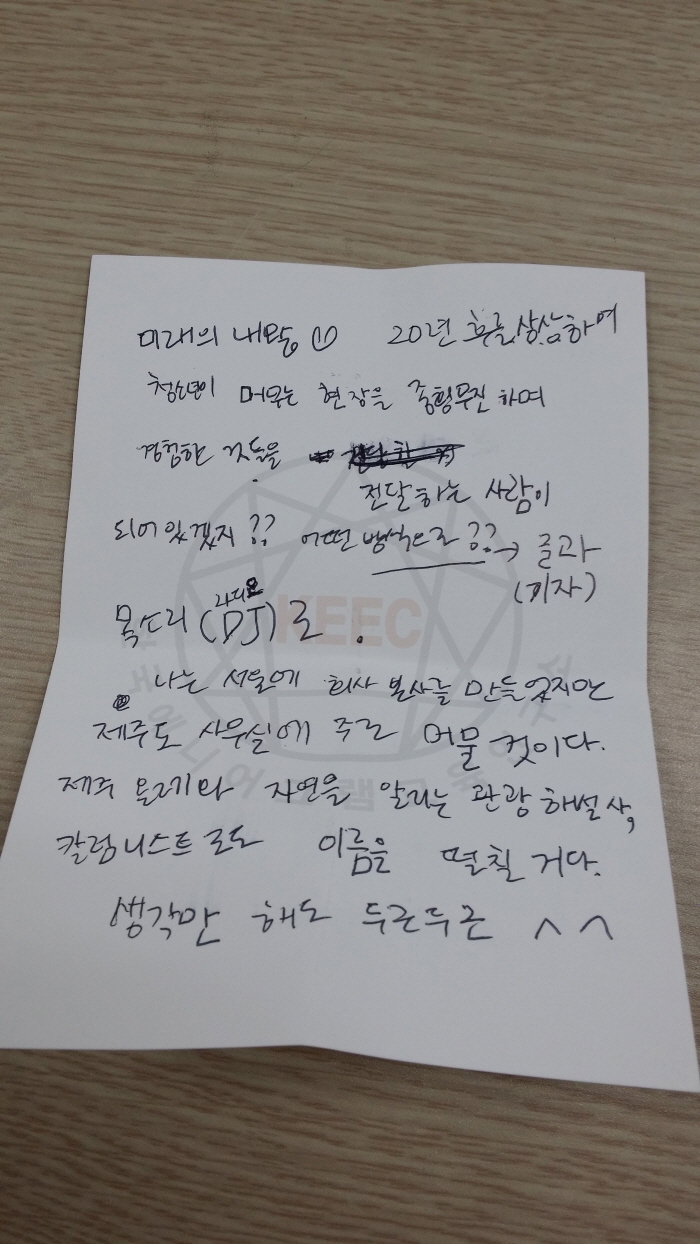 미래의 내모습 20년 후를 상상하여
청소년이 머무는 현장을 종횡무진 하며
경험한 것들을
전달하는 사람이
되어 있겠지?? 어떤 방식으로??→ 글과
(기자)
라디오
목소리(DJ)로.
KEEC
나는 서울에 회사 본사를 만들었지만
제주도 사무실에 주로 머물 것이다.
제주 올레와 자연을 알리는 관광 해설사,
칼럼니스트로도 이름을 떨칠 거다.
생각만 해도 두근두근 ^^